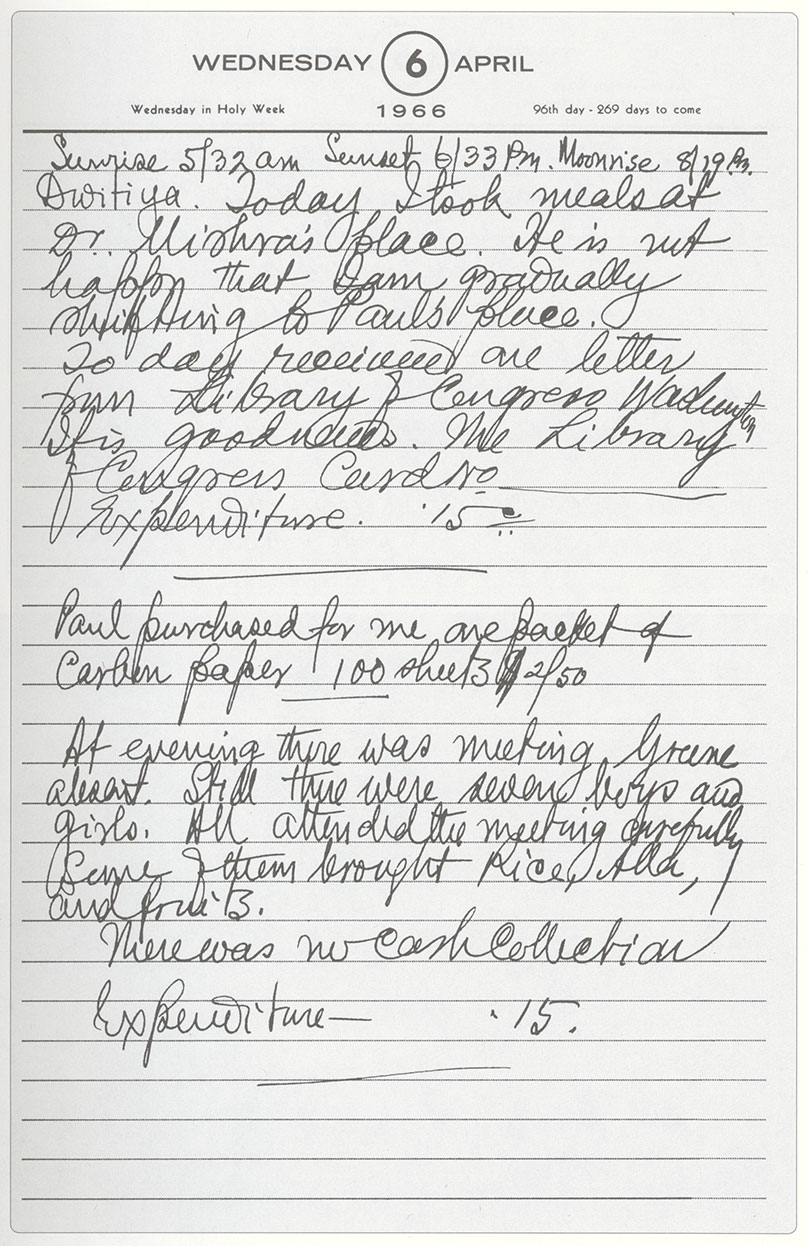 WEDNESDAY 6 APRIL
Wednesday in Holy Week 1966 96th day - 269 days to come
Sunrise 5/32 am Sunset 6/33 Pm. Moonrise 8/19 Pm.
Dwitiya. Today I took meals at
Dr. Mishra's place. He is not
happy that I am gradually
shifting to Paul's place.
To day received one letter
from Library of Congress Washington
It is good news. The Library
of Congress Card No
Expenditure. .15
Paul purchased for me one packet of
Carbon paper 100 sheets $ 2/50
At evening there was meeting. Greene
absent. Still there were seven boys and
girls. All attended the meeting carefully
Some of them brought Rice, Atta,
and fruits.
There was no Cash Collection
Expenditure— .15.